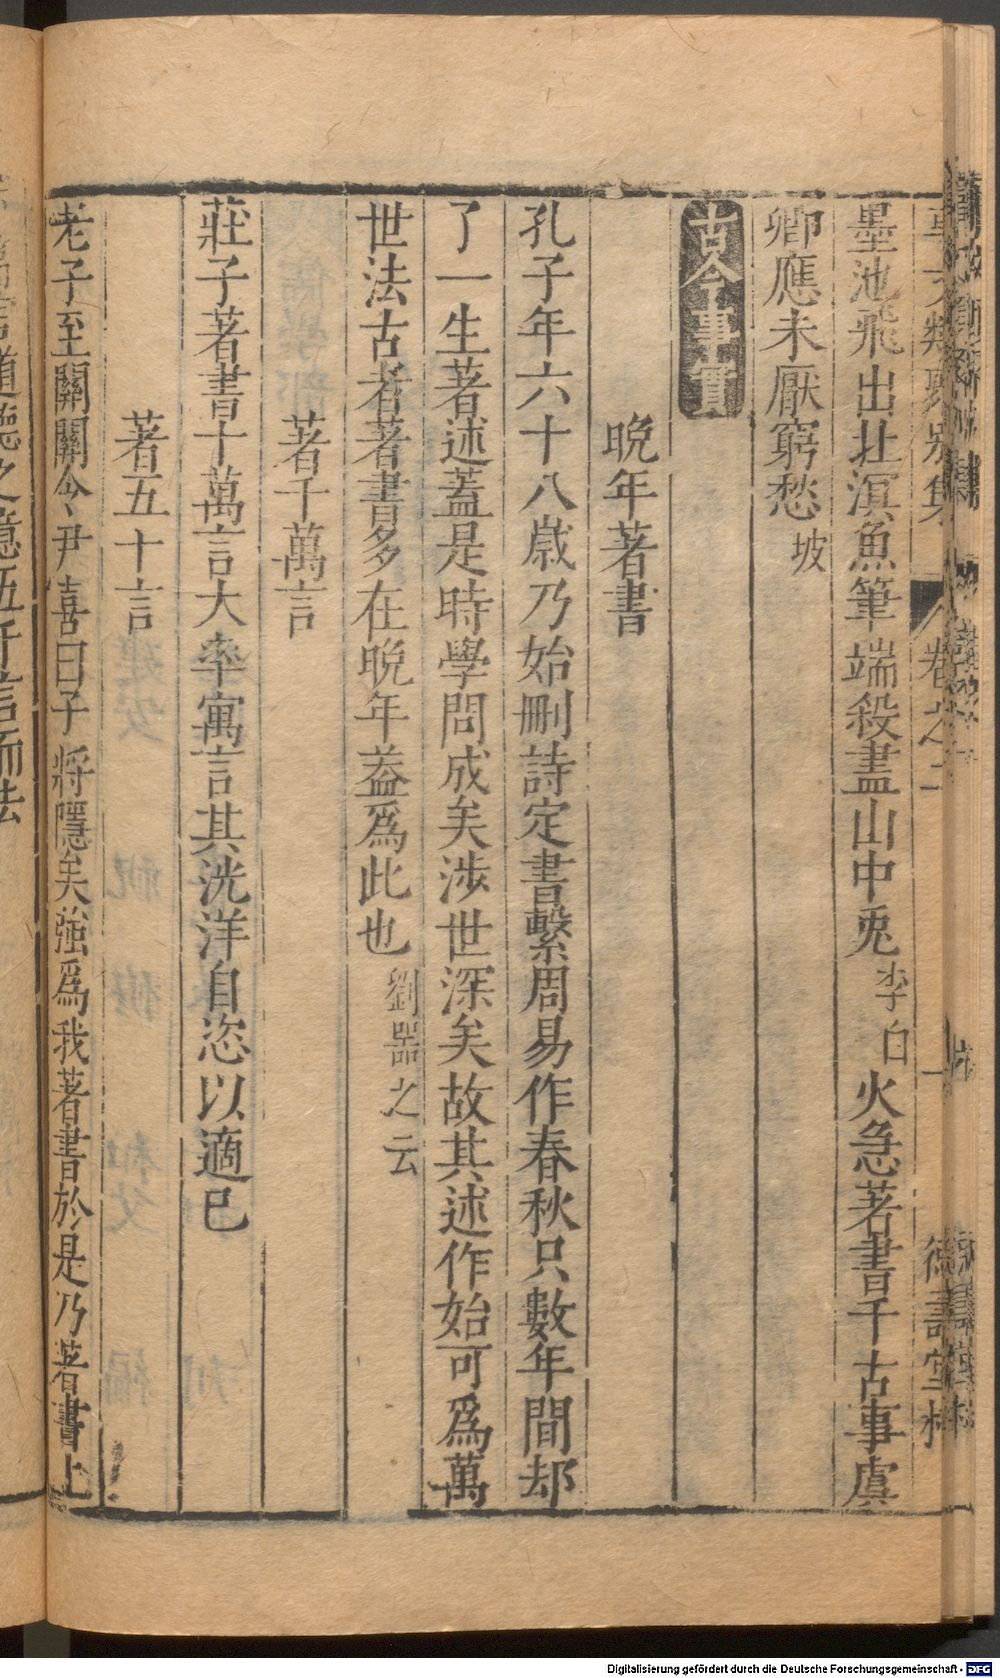 墨池飛出北溟魚筆端殺盡山中兎李白火急著書千古事虞
卿應未厭窮愁坡
古今事實
晩年著書
孔子年六十八歲乃始刪詩定書繫周易作春秋只數年間却
了一生著述蓋是時學問成矣涉世深矣故其述作始可爲萬
世法古者著書多在晩年葢爲此也劉器之云
著千萬言
莊子著書十萬言大率寓言其洸洋自恣以適已
著五十言
老子至關關令尹喜曰子將隱矣強爲我著書於是乃著書上
Digitalisierung gefördert durch die Deutsche Forschungsgemeinschaft - DFG